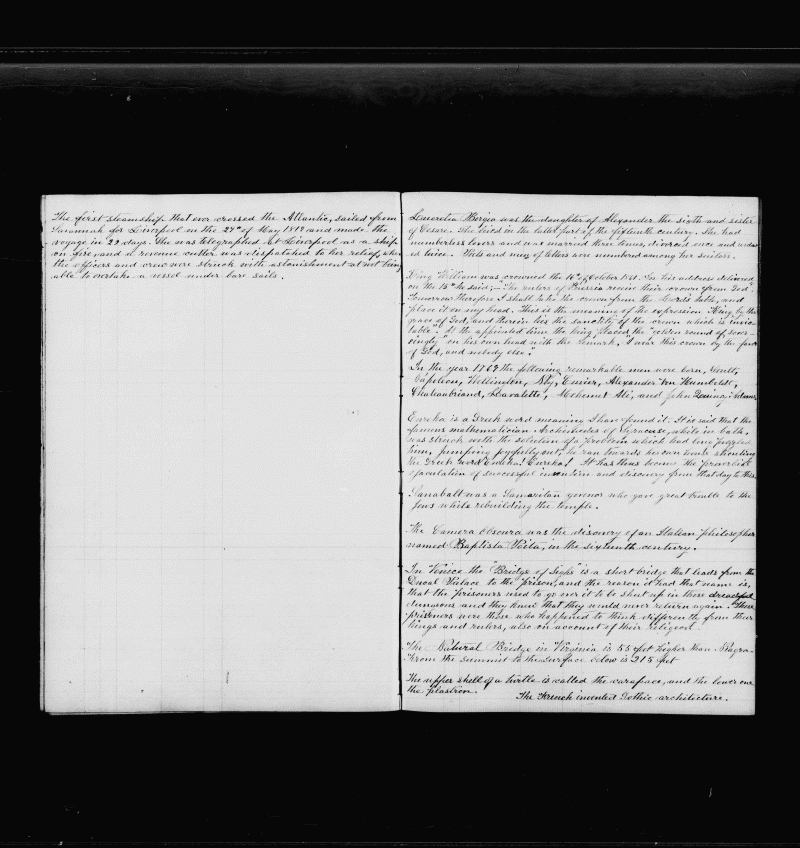 The first steamship that ever crossed the Atlantic, sailed from
Savannah for Liverpool on the 27" of May 1819 and made the
voyage in 22 days. She was telegraphed at Liverpool as a ship
on fire, and a revenue cutter was dispatched to her relief, when
the officers and crew were struck with astonishment at not being
able to overtake a vessel under bare sails.
Lucretia Borgia was the daughter of Alexander the sixth and sister
of Cesare. She lived in the latter part of the fifteenth century. She had
numberless lovers and was married three times, divorced once and widow
ed twice. Wits and men of letters were numbered among her suitors.
King William was crowned the 16" of October 1861. In his address delivered
on the 15" he said;—"The rulers of Prussia receive their crown from God".
Tomorrow therefore I shall take the crown from the Lord's table, and
place it on my head. This is the meaning of the expression "King by the
grace of God, and therein lies the sanctity of the crown which is invio-
table". At the appointed time the king placed the "golden round of sover-
eingty" on his own head with the remark, "I wear this crown by the favor
of God, and nobody else."
In the year 1769 the following remarkable men were born,
Napoleon, Wellington, Ney, Cuvier, Alexander Von Humboldt,
Chateaubriand, Lavalette, Mehemet Ali, and John Quincy Adams,
Eureka is a Greek word meaning I have found it. It is said that the
famous mathematician Archimedes of Syracuse, while in bath,
was struck with the solution of a problem which had long puzzled
him, jumping joyfully out, he ran towards his own house shouting
the Greek word Eureka! Eureka! It has thus become the proverbial
ejaculation of successful invention and discovery from that day to this.
Sanabalt was a Samaritan govenor who gave great trouble to the
Jews while rebuilding the temple.
The Camera Obscura was the discovery of an Italian philosopher
named Baptista Porta, in the sixteenth century.
In Venice the "Bridge of Sighs" is a short bridge that leads from the
Ducal Palace to the prison, and the reason it had that name is,
that the prisoners used to go over it to be shut up in these dreadful
dungeons and they knew that they would never return again. These
prisoners were those who happened to think differently from their
kings and rulers, also on account of their religion.
The Natural Bridge in Virginia is 55 feet higher than Niagra.
From the summit to the surface below is 215 feet
The upper shell of a turtle is called the carapace, and the lower one
the plastron.
The French invented Gothic architecture.